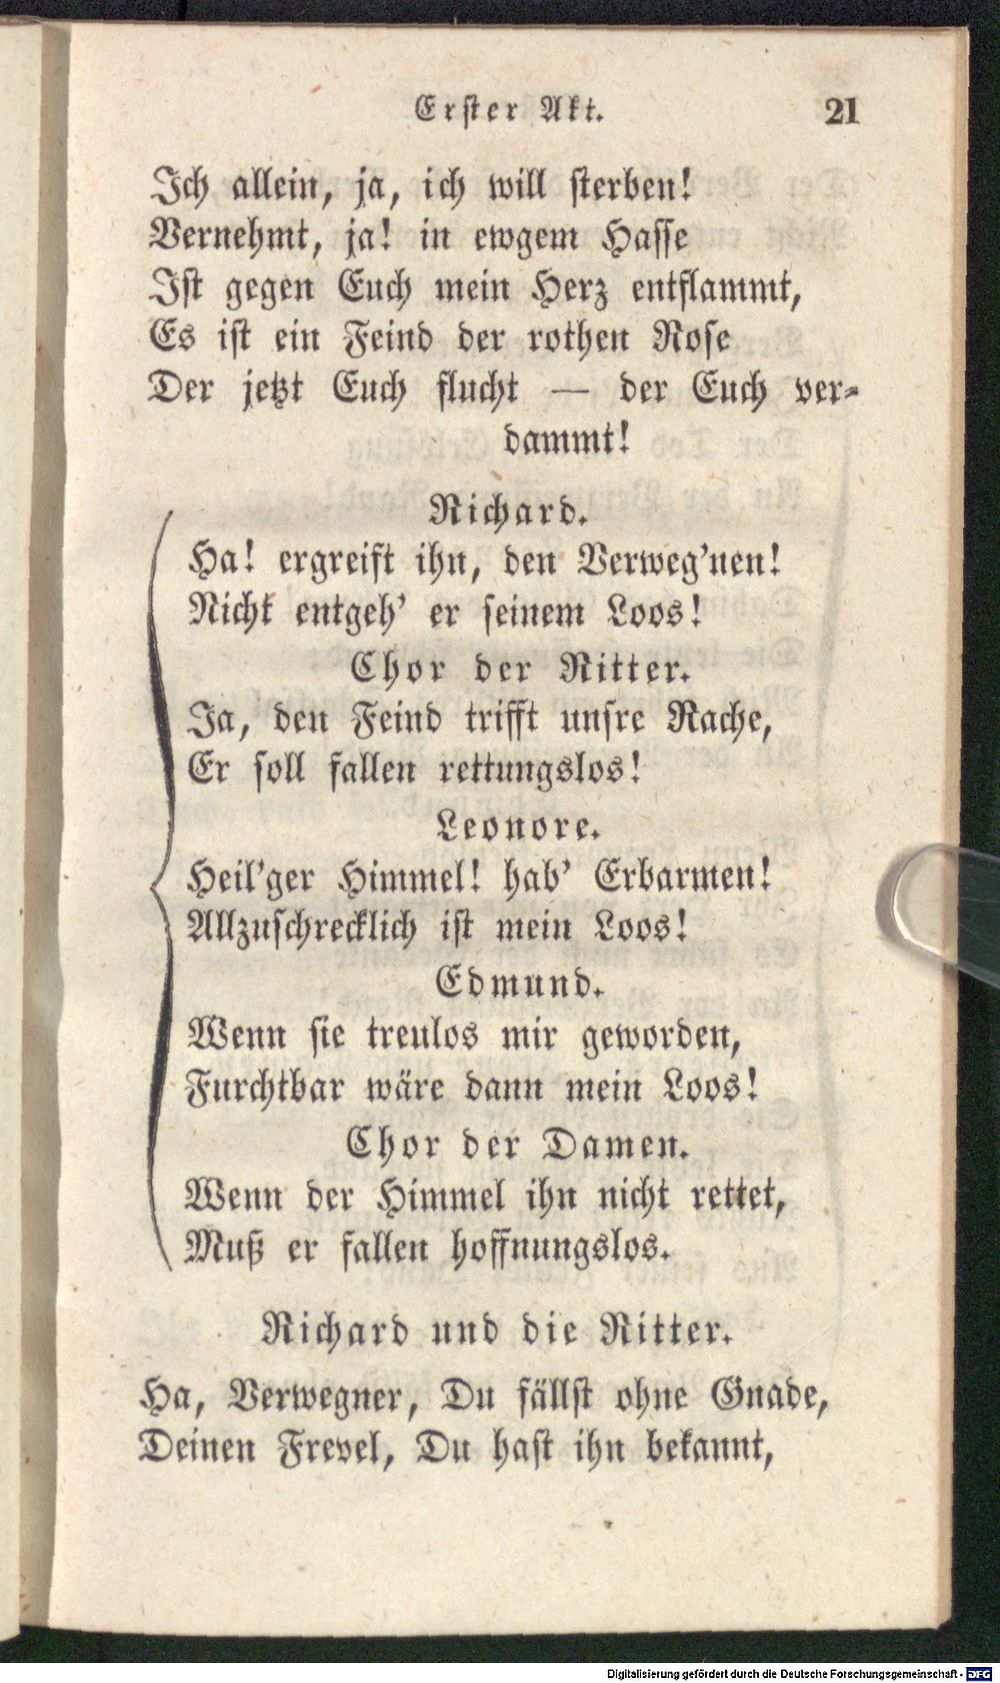 Erster Akt. 21
Ich allein, ja, ich will sterben!
Vernehmt, ja! in ewgem Hasse
Ist gegen Euch mein Herz entflammt,
Es ist ein Feind der rothen Rose
Der jetzt Euch flucht — der Euch ver-
dammt!
Richard.
Ha! ergreift ihn, den Verweg'nen!
Nicht entgeh' er seinem Loos!
Chor der Ritter.
Ja, den Feind trifft unsre Rache,
Er soll fallen rettungslos!
Leonore.
Heil'ger Himmel! hab' Erbarmen!
Allzuschrecklich ist mein Loos!
Edmund.
Wenn sie treulos mir geworden,
Furchtbar wäre dann mein Loos!
Chor der Damen.
Wenn der Himmel ihn nicht rettet,
Muß er fallen hoffnungslos.
Richard und die Ritter.
Ha, Verwegner, Du fällst ohne Gnade,
Deinen Frevel, Du hast ihn bekannt,
Digitalisierung gefördert durch die Deutsche Forschungsgemeinschaft - DFG